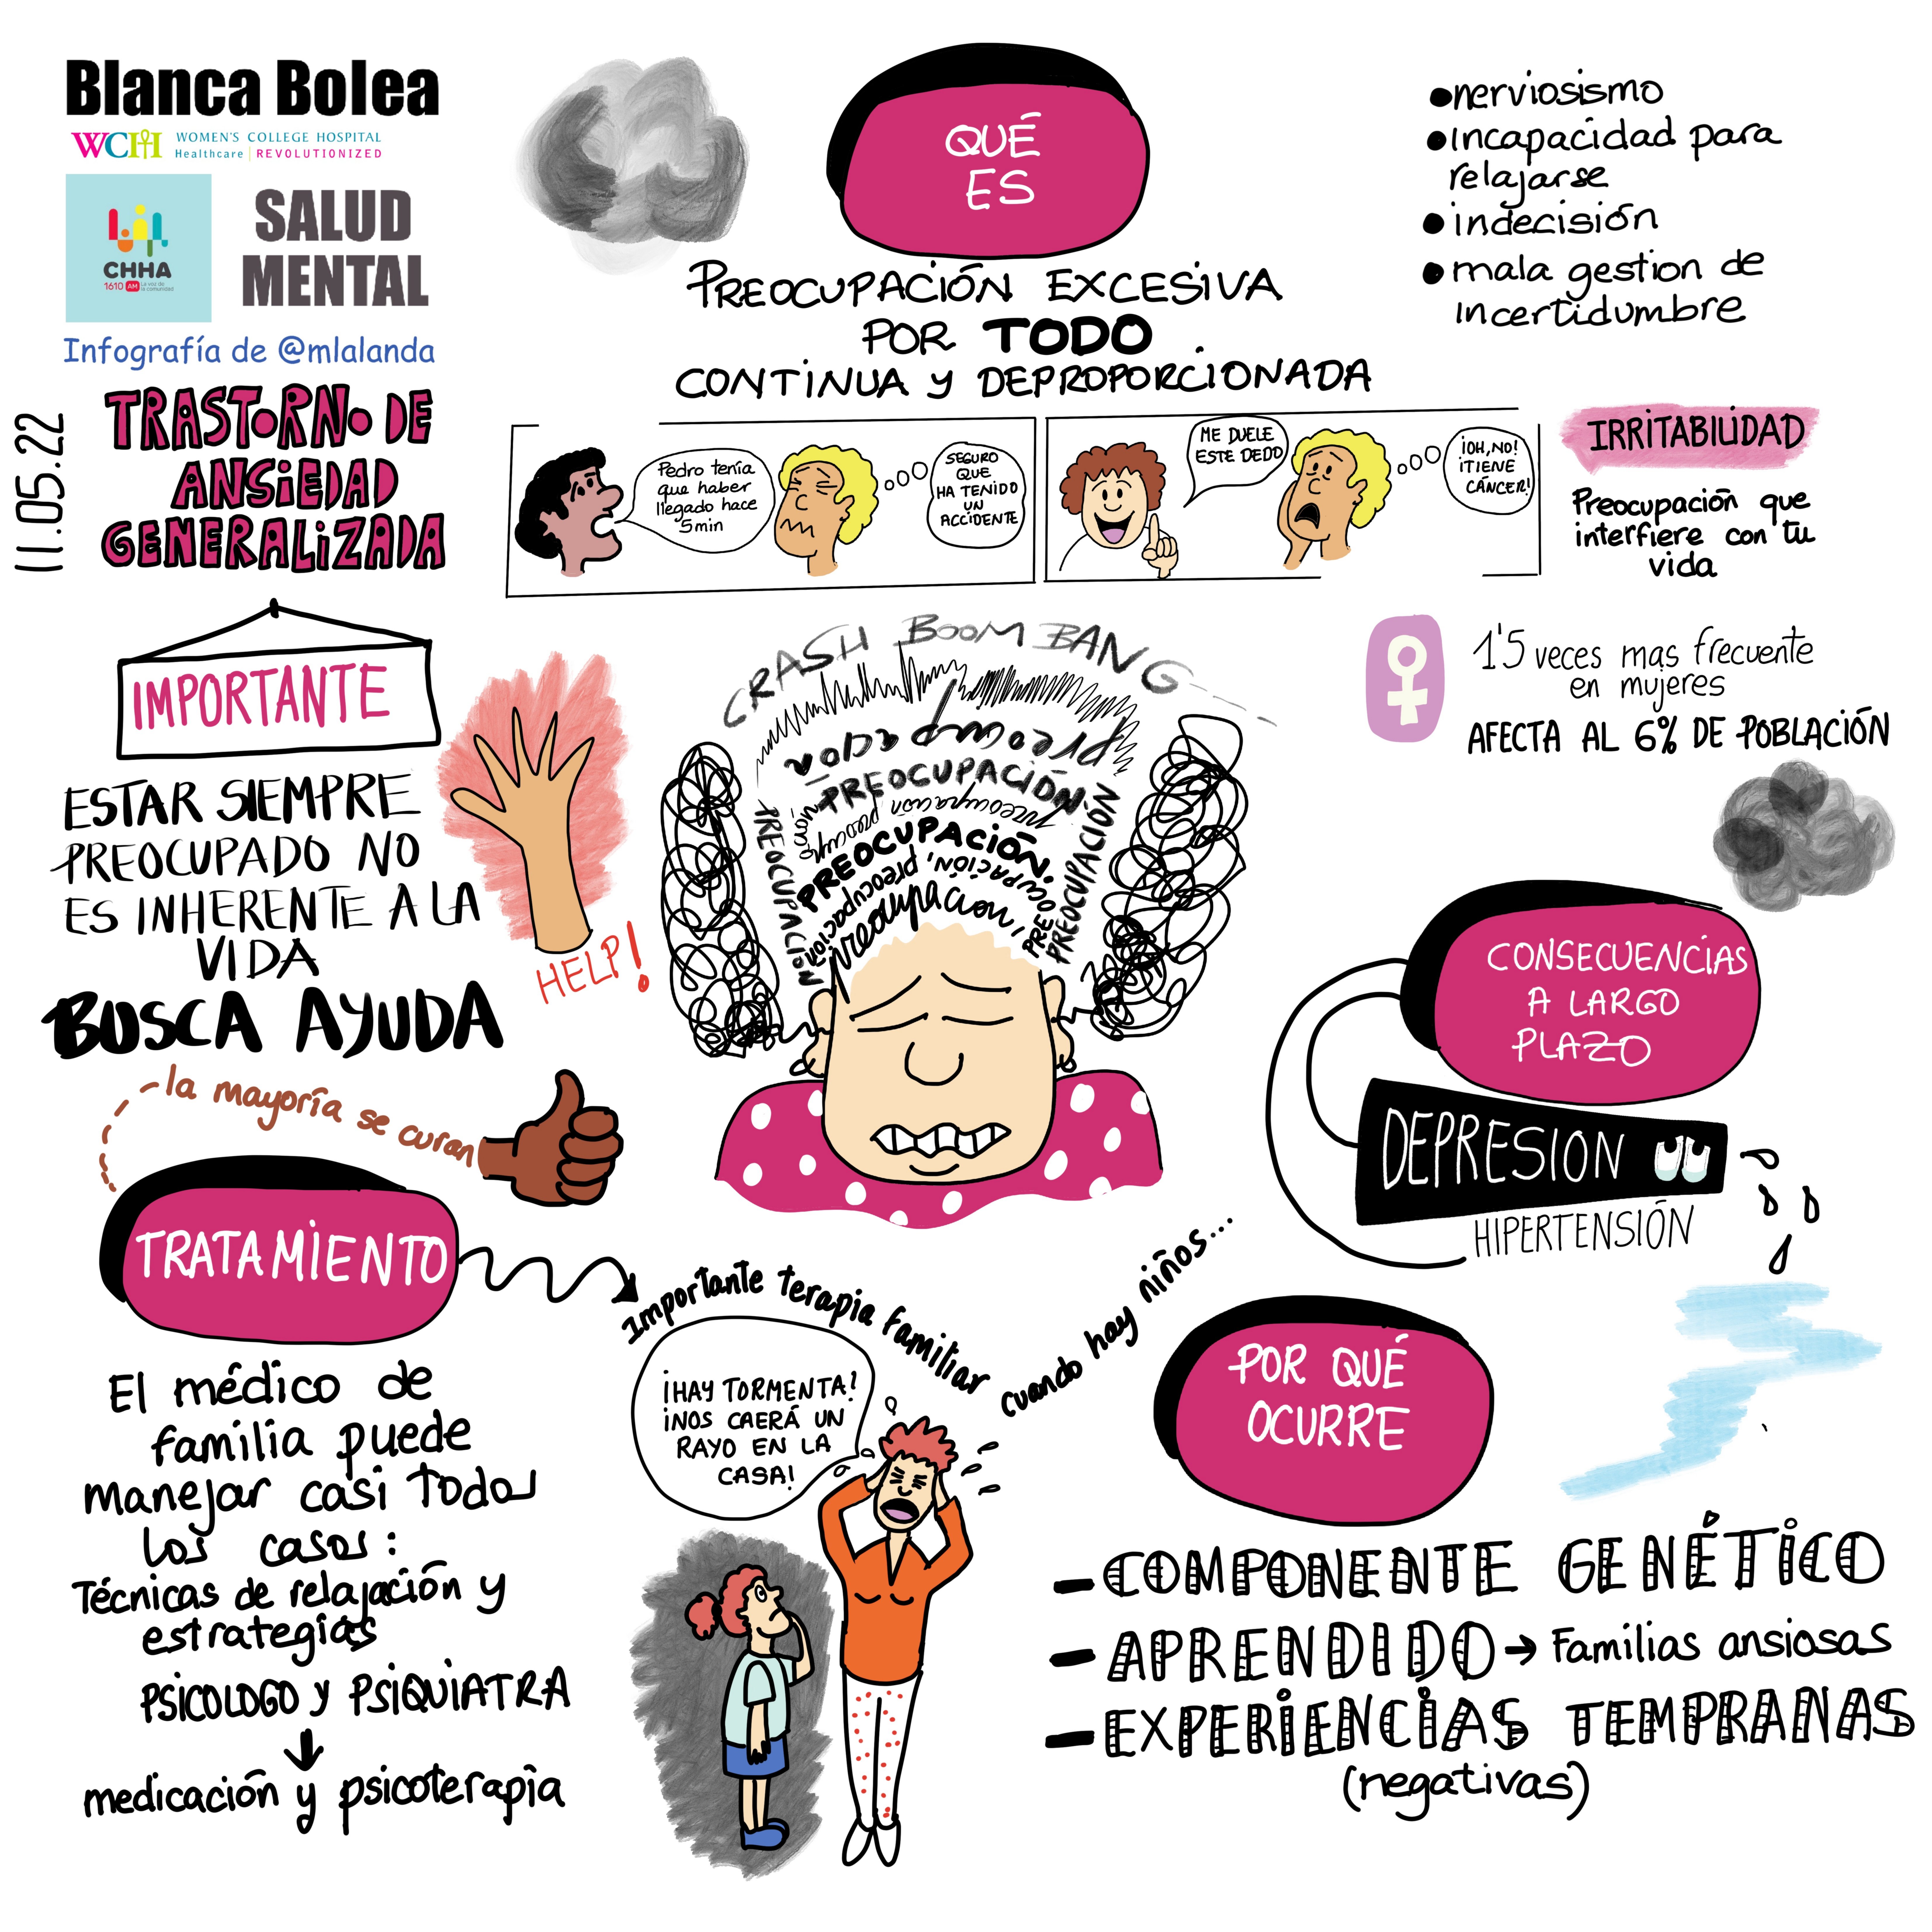 Blanca Bolea
WCH WOMEN'S COLLEGE HOSPITAL
Healthcare | REVOLUTIONIZED
CHHA
1610 AM La voz de
la comunidad
SALUD
MENTAL
Infografía de @mlalanda
11.05.22
TRASTORNO DE
ANSiEDAD
GENERALiZADA
QUÉ
ES
PREOCUPACIÓN EXCESIVA
POR TODO
CONTiNUA y DEPROPORCIONADA
•nerviosismo
•incapacidad para
relajarse
•indecisión
•mala gestion de
incertidumbre
Pedro tenía
que haber
llegado hace
5min
SEGURO
QUE
HA TENIDO
UN
ACCIDENTE
ME DUELE
ESTE DEDO
¡OH, NO!
¡TIENE
CÁNCER!
IRRITABILIDAD
Preocupación que
interfiere con tu
vida
IMPORTANTE
ESTAR SIEMPRE
PREOCUPADO NO
ES INHERENTE A LA
VIDA
BUSCA AYUDA
HELP!
CRASH BOOM BANG
preocupación
PREOCUPACIÓN
preocupación preocupación
PREOCUPACIÓN
PREOCUPACIÓN, preocupación
Preocupacion,
PREOCUPACION
PREOCUPACIÓN
1'5 veces mas frecuente
en mujeres
AFECTA AL 6% DE POBLACIÓN
CONSECUENCIAS
A LARGO
PLAZO
DEPRESION
HIPERTENSIÓN
-la mayoría se curan
TRATAMIENTO
Importante terapia familiar cuando hay niños...
El médico de
familia puede
manejar casi todos
los casos:
Técnicas de relajación y
estrategias
PSICOLOGO y PSIQUIATRA
medicación y psicoterapia
¡HAY TORMENTA!
¡NOS CAERÁ UN
RAYO EN LA
CASA!
POR QUÉ
OCURRE
-COMPONENTE GENÉTICO
-APRENDIDO → Familias ansiosas
-EXPERIENCIAS TEMPRANAS
(negativas)